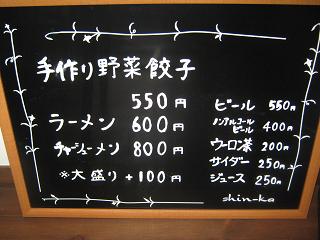 手作り野菜餃子
550円
ラーメン 600円
チャーシューメン 800円
※大盛り +100円
ビール 550円
ノンアルコールビール 400円
ウーロン茶 200円
サイダー 250円
ジュース 250円
shin-ka